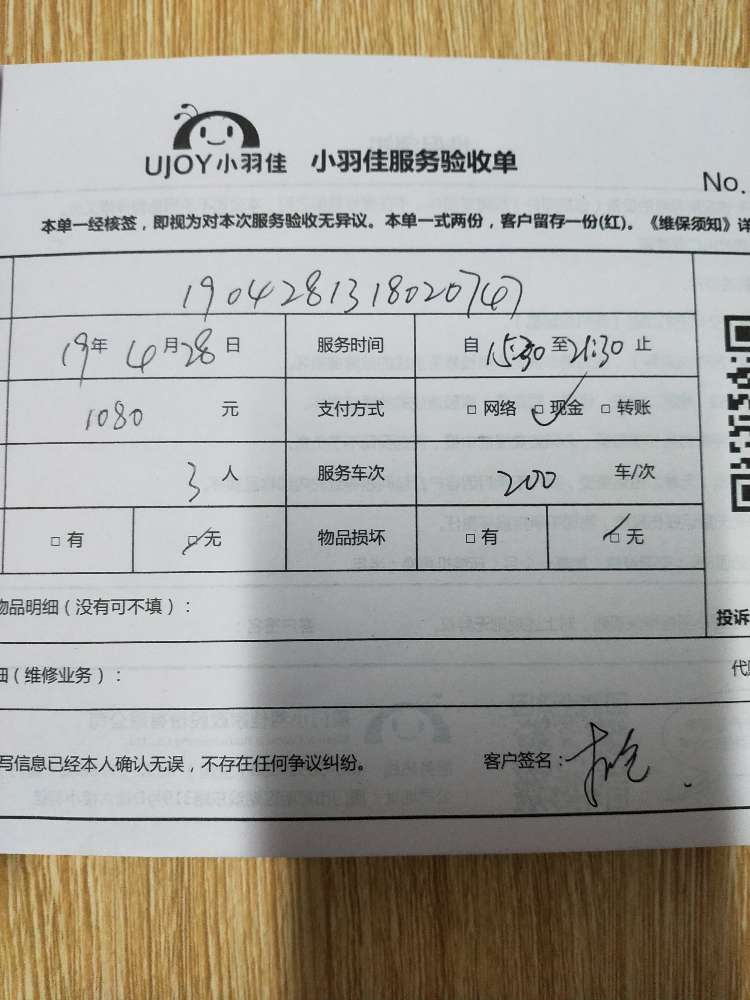 UJOY小羽佳 小羽佳服务验收单
No.
本单一经核签，即视为对本次服务验收无异议。本单一式两份，客户留存一份(红)。《维保须知》详
1904281318020747
19年 4月28日 服务时间 自15:30至21:30止
1080 元 支付方式 □网络 □现金 □转账
3人 服务车次 200 车/次
□有 □无 物品损坏 □有 □无
物品明细（没有可不填）：
投诉
细（维修业务）：
写信息已经本人确认无误，不存在任何争议纠纷。 客户签名：